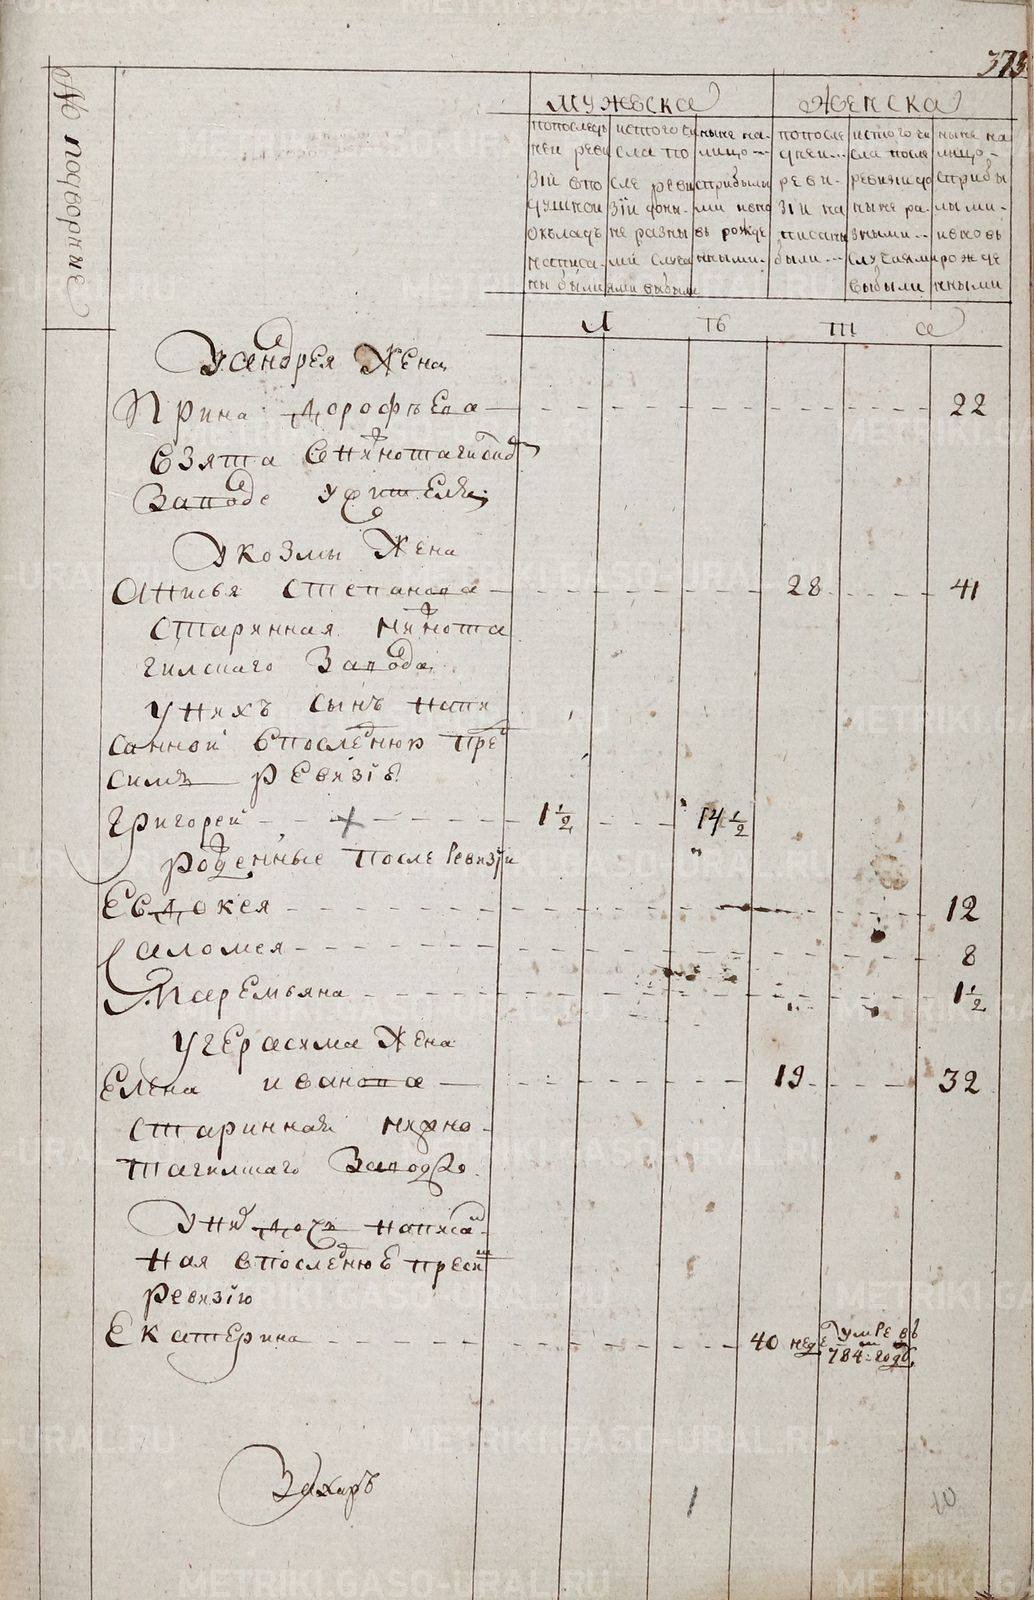 373
№ подворные
мужеска
женска
попослед
ней реви
зіи впо
душной
окладъ
написа-
ны были
истого чи
сла по
сле реви
зіи доны-
не разны
ми случа
ями выбыли
ныне на-
лицо
сприбылы
ми ивно
вь рожде
нными
попосле
дней
реви-
зіи на
писаны
были
истого чи
сла после
ревизіи до
ныне ра-
зными
случаями
выбыли
ныне на
лицо
сприбы
лыми
ивновь
рожде
нными
лѣта
У андрея Жена
Ирина дорофѣева 22
взята снижнотагилскаго
Завода
У козмы Жена
Анисья степанова 28 41
старинная нижнота
гилскаго Завода
у нихъ сынъ напи
санной впоследнюю пред
симъ ревизію
григорей 1 ½ 14 ½
рожденные после ревизіи
Евдокея 12
Саломея 8
Маремьяна 1 ½
у герасима Жена
Елена иванова 19 32
старинная нижно-
тагилскаго Завода
У них дочь написа-
ная впоследнюю пред сим
ревизію
Екатерина 40 неде умре въ
784 годе
Захаръ
1 10